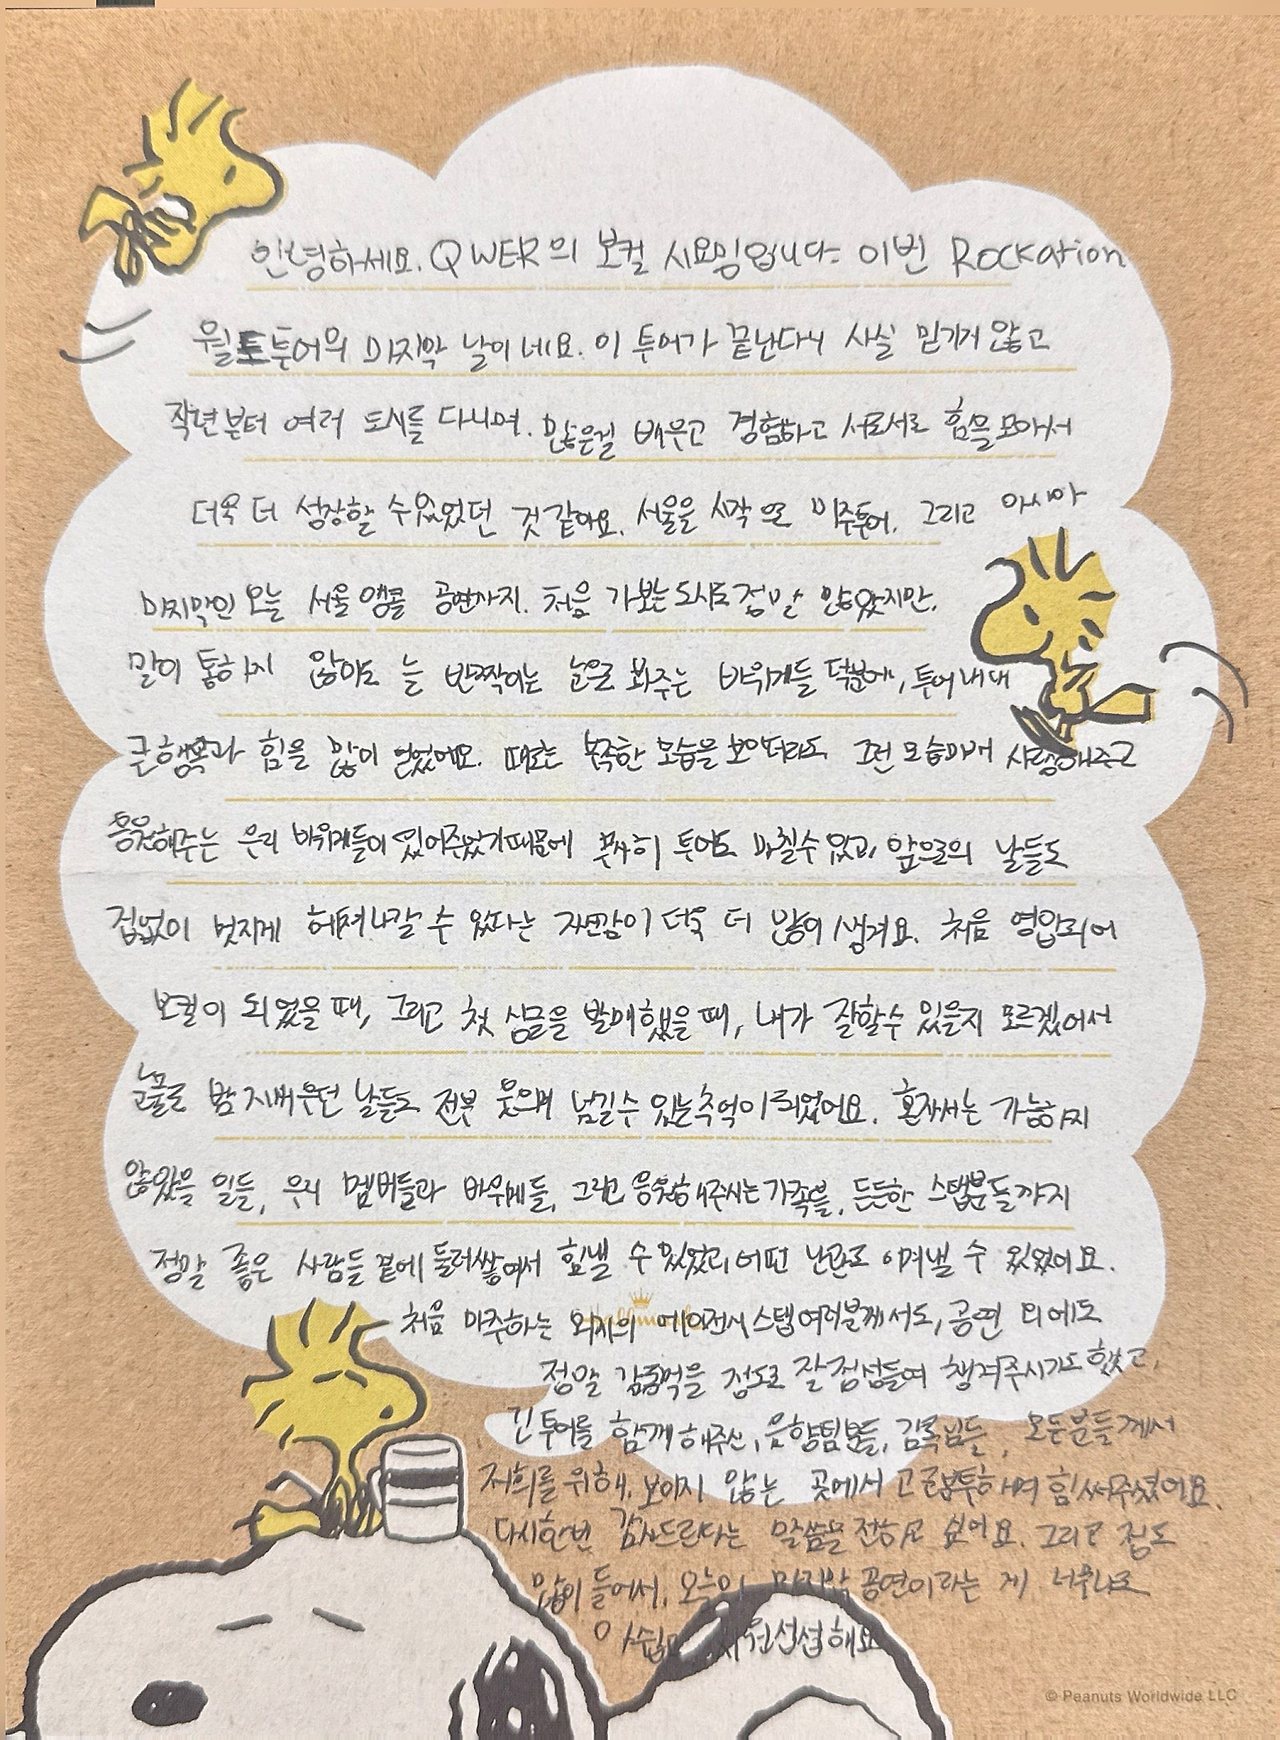 안녕하세요. QWER의 보컬 시요밍입니다. 이번 Rockation
월드투어의 마지막 날이네요. 이 투어가 끝난다니 사실 믿기지 않고
작년부터 여러 도시를 다니며. 많은걸 배우고 경험하고 서로서로 힘을 모아서
더욱 더 성장할 수 있었던 것 같아요. 서울을 시작으로 미주투어. 그리고 아시아
마지막인 오늘 서울 앵콜 공연까지. 처음 가보는 도시도 정말 많았지만.
말이 통하지 않아도 늘 반짝이는 눈으로 봐주는 바위게들 덕분에, 투어 내내
큰 행복과 힘을 많이 얻었어요. 때로는 부족한 모습을 보이더라도 그런 모습마저 사랑해주고
응원해주는 우리 바위게들이 있어주었기 때문에 무사히 투어도 마칠 수 있었고, 앞으로의 날들도
겁없이 멋지게 헤쳐나갈 수 있다는 자신감이 더욱 더 많이 생겨요. 처음 영입되어
보컬이 되었을 때, 그리고 첫 싱글을 발매했을 때, 내가 잘할 수 있을지 모르겠어서
눈물로 밤 지새우던 날들도 전부 웃으며 넘길 수 있는 추억이 되었어요. 혼자서는 가능하지
않았을 일들, 우리 멤버들과 바위게들, 그리고 응원해주시는 가족분들, 든든한 스탭분들까지
정말 좋은 사람들 곁에 둘러쌓여서 힘낼 수 있었고 어떤 난관도 이겨낼 수 있었어요.
Hallmark
처음 마주하는 외지의 에이전시 스탭 여러분께서도, 공연 외에도
정말 감동먹을 정도로 잘 점심들여 챙겨주시기도 했고,
긴 투어를 함께 해주신, 음향팀분들, 감독님들, 모든분들께서
저희를 위해. 보이지 않는 곳에서 고군분투하며 힘써주셨어요.
다시한번 감사드린다는 말씀을 전하고 싶어요. 그리고 정도
많이 들어서. 오늘이 마지막 공연이라는 게 너무나도
아쉽고 시원섭섭해요
© Peanuts Worldwide LLC